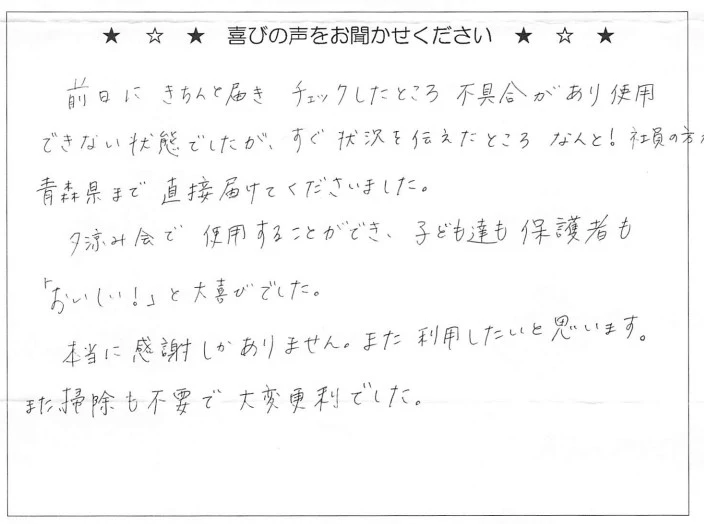 ★ ☆ ★ 喜びの声をお聞かせください ★ ☆ ★
前日に きちんと届き チェックしたところ 不具合があり使用
できない状態でしたが、すぐ 状況を伝えたところ なんと! 社員の方が
青森県まで 直接届けてくださいました。
夕涼み会で 使用することができ、子ども達も 保護者も
「おいしい!」と 大喜びでした。
本当に 感謝しかありません。また 利用したいと思います。
また、掃除も不要で 大変便利でした。